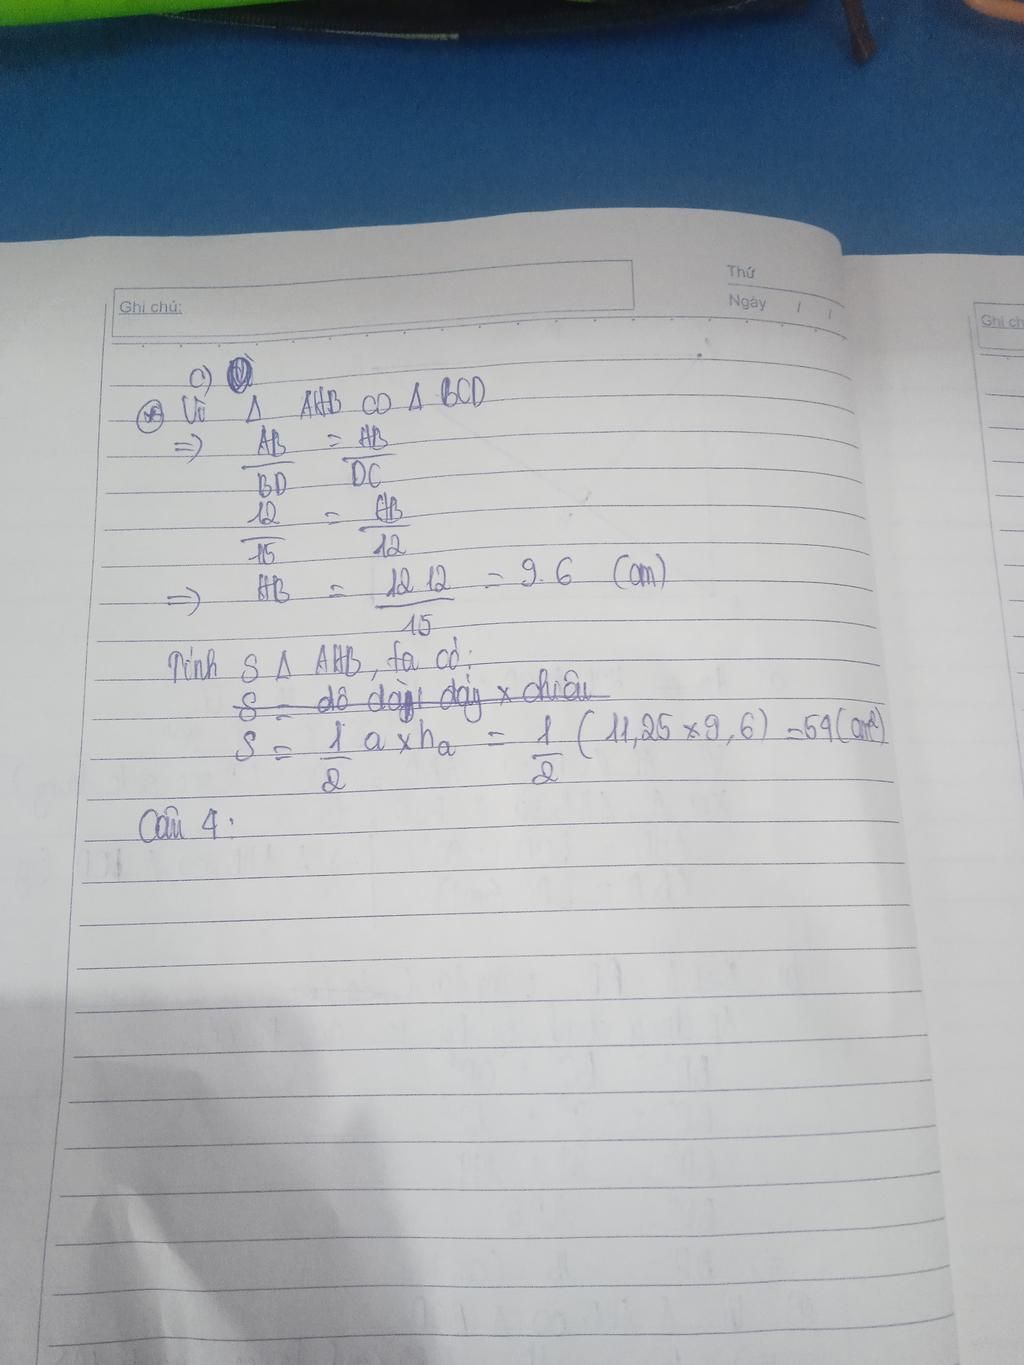 Thứ
Ghi chú:
Ngày / /
Ghi ch
c)
Vì Δ AHB ∽ Δ BCD
=> AB/BD = HB/DC
12/15 = HB/12
=> HB = 12.12/15 = 9.6 (cm)
Tính S Δ AHB, ta có:
S = độ dài đáy x chiều
S = 1/2 a x ha = 1/2 (11,25 x 9,6) = 54 (cm²)
Câu 4: